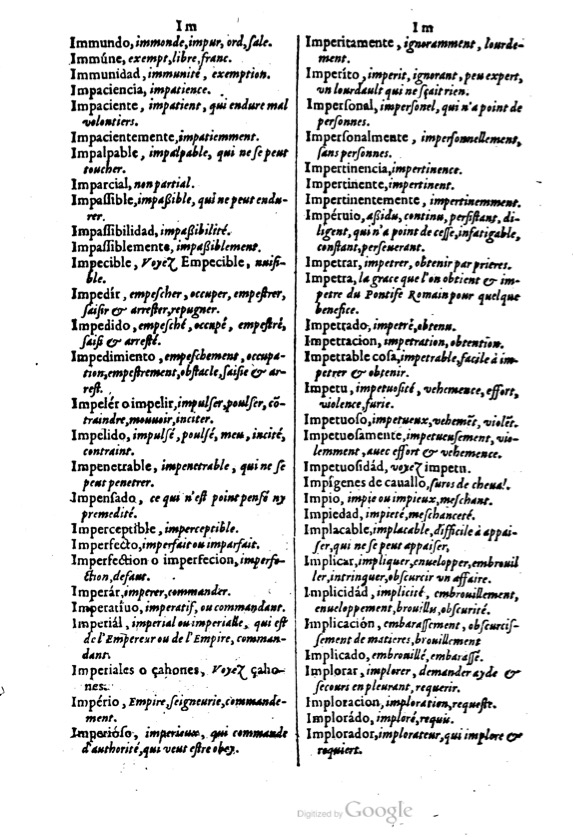 Im
Immundo, immonde, impur, ord, sale.
Immúne, exempt, libre, franc.
Immunidad, immunité, exemption.
Impaciencia, impatience.
Impaciente, impatient, qui endure mal
volontiers.
Impacientemente, impatiemment.
Impalpable, impalpable, qui ne se peut
toucher.
Imparcial, non partial.
Impaſſible, impaßible, qui ne peut endu-
rer.
Impaſſibilidad, impaßibilité.
Impaſſiblemente, impaßiblement.
Impecible, Voyez Empecible, nuiſi-
ble.
Impedír, empeſcher, occuper, empeſtrer,
ſaiſir & arreſter, repugner.
Impedido, empeſché, occupé, empeſtré,
ſaiſi & arreſté.
Impedimiento, empeſchement, occupa-
tion, empeſtrement, obſtacle, ſaiſie & ar-
reſt.
Impelér o impelir, impulſer, poulſer, cō-
traindre, mouuoir, inciter.
Impelido, impulſé, poulſé, meu, incité,
contraint.
Impenetrable, impenetrable, qui ne ſe
peut penetrer.
Impenſado, ce qui n'eſt point penſé ny
premedité.
Imperceptible, imperceptible.
Imperfecto, imperfait ou imparfait.
Imperfection o imperfecion, imperfe-
ction, defaut.
Imperár, imperer, commander.
Imperatiuo, imperatif, ou commandant.
Imperiál, imperial ou imperialle, qui eſt
de l'Empereur ou de l'Empire, comman-
dant.
Imperiales o çahones, Voyez çaho-
nes.
Império, Empire, ſeigneurie, commande-
ment.
Imperióſo, imperieux, qui commande
d'authorité, qui veut eſtre obey.
Im
Imperitamente, ignoramment, lourde-
ment.
Imperíto, imperit, ignorant, peu expert,
vn lourdault qui ne ſçait rien.
Imperſonal, imperſonel, qui n'a point de
perſonnes.
Imperſonalmente, imperſonnellement,
ſans perſonnes.
Impertinencia, impertinence.
Impertinente, impertinent.
Impertinentemente, impertinemment.
Impéruio, aßidu, continu, perſiſtans, di-
ligent, qui n'a point de ceſſe, infatigable,
conſtant, perſeuerant.
Impetrar, impetrer, obtenir par prieres.
Impetra, la grace que l'on obtient & im-
petre du Pontife Romain pour quelque
benefice.
Impetrado, impetré, obtenu.
Impetracion, impetration, obtention.
Impetrable coſa, impetrable, facile à im-
petrer & obtenir.
Impetu, impetuoſité, vehemence, effort,
violence, furie.
Impetuoſo, impetueux, vehemēt, violēt.
Impetuoſamente, impetueuſement, vio-
lemment, auec effort & vehemence.
Impetuoſidád, voyez impetu.
Impígenes de cauallo, ſuros de cheual.
Impio, impie ou impieux, meſchant.
Impiedad, impieté, meſchanceté.
Implacable, implacable, difficile à appai-
ſer, qui ne ſe peut appaiſer,
Implicar, impliquer, enuelopper, embrouil
ler, intringuer, obſcurcir vn affaire.
Implicidád, implicité, embrouillement,
enueloppement, brouillu, obſcurité.
Implicación, embaraſſement, obſcurciſ-
ſement de matieres, brouillement
Implicado, embrouillé, embaraſſé.
Implorar, implorer, demander ayde &
ſecours en pleurant, requerir.
Imploracion, imploration, requeſte.
Implorádo, imploré, requis.
Implorador, implorateur, qui implore &
requiert.
Digitized by Google